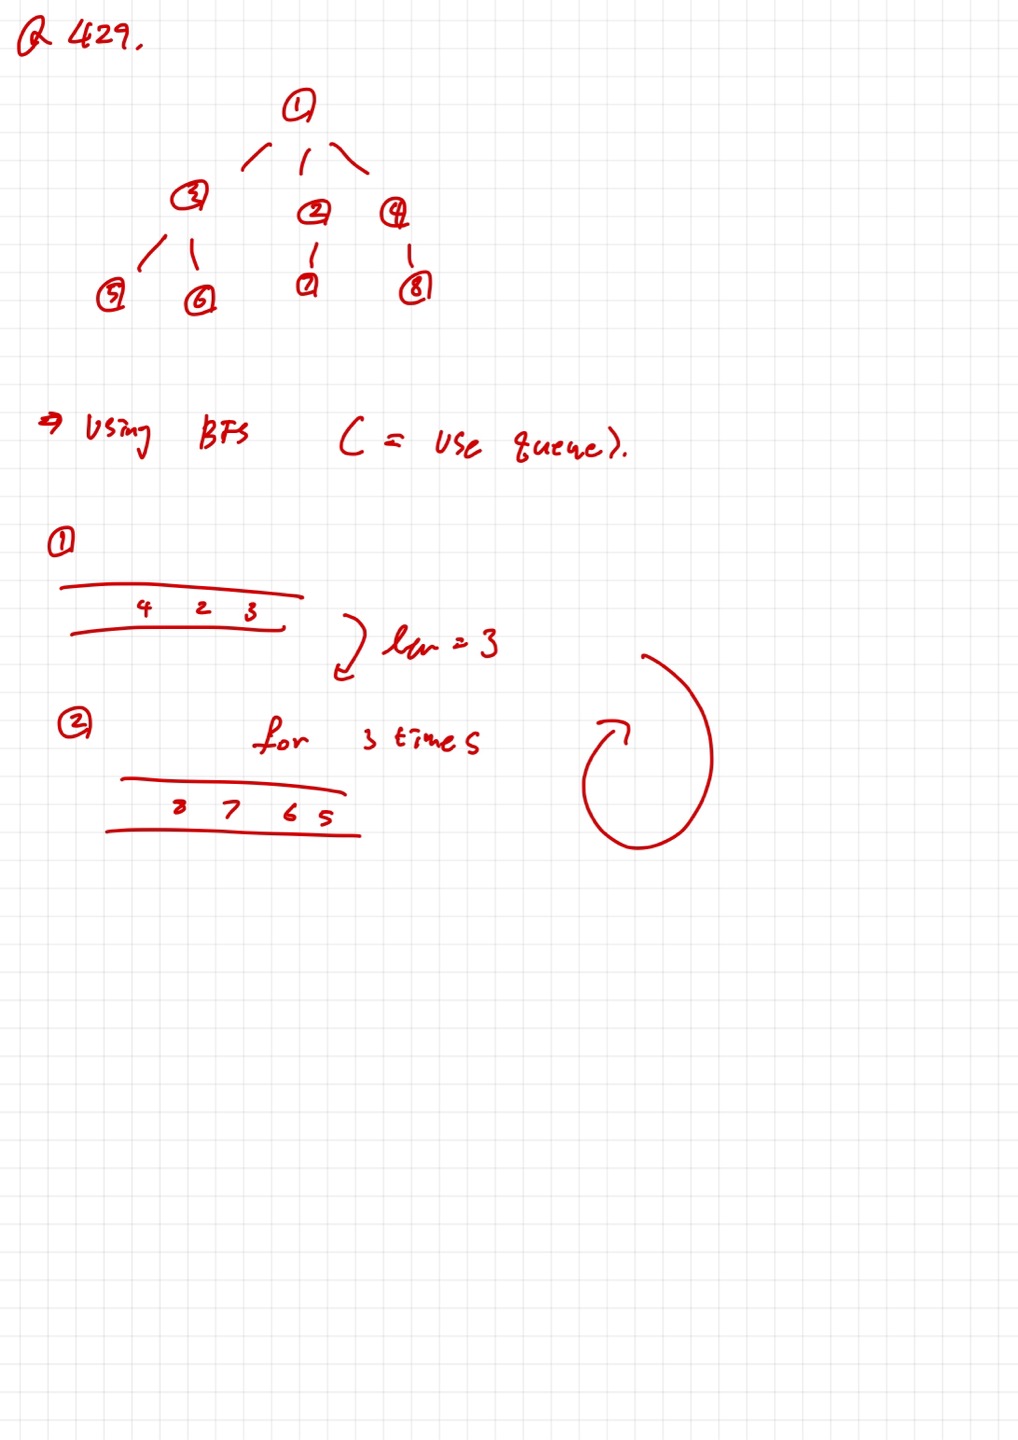 Q 429.
①
③ ② ④
⑤ ⑥ ⑦ ⑧
⇒ Using BFS (= use queue).
①
4 2 3
len = 3
②
for 3 times
8 7 6 5